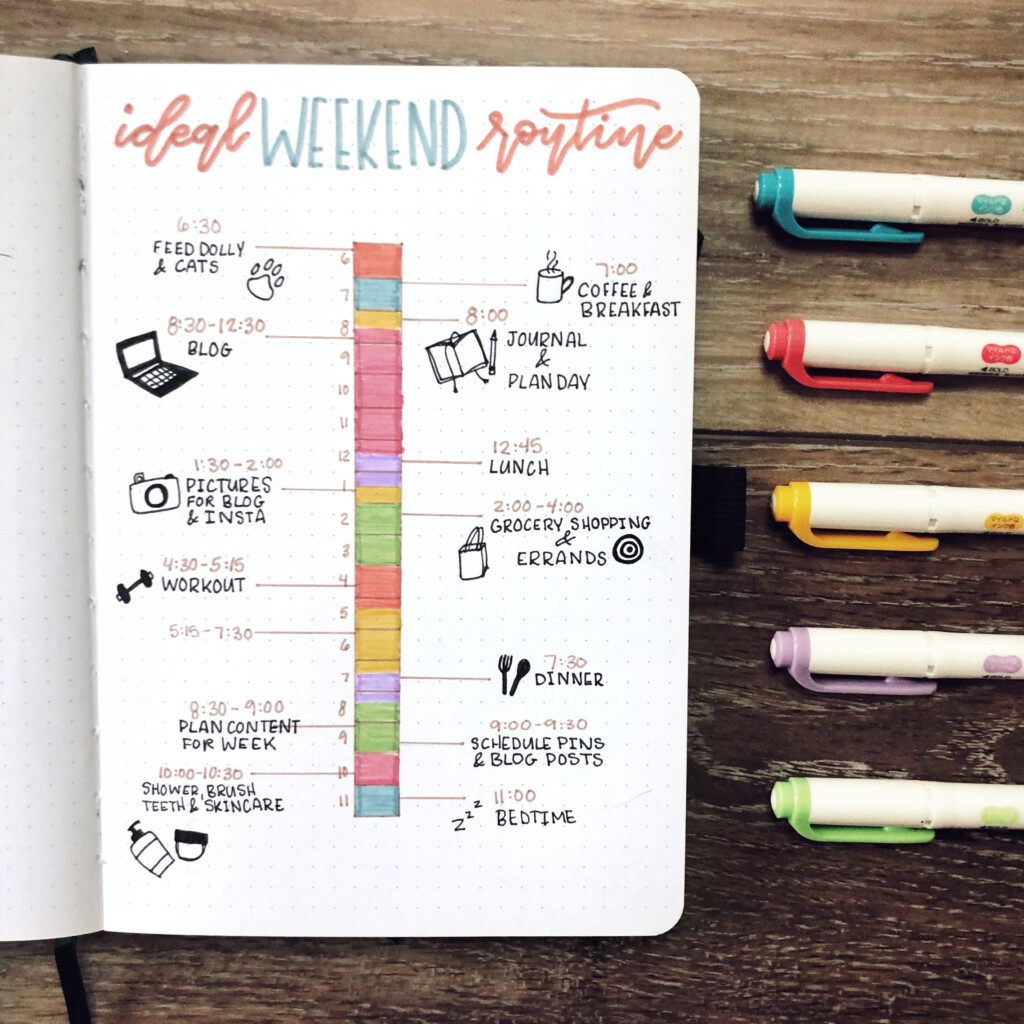 ideal WEEKEND routine
6:30
FEED DOLLY
& CATS
7:00
COFFEE &
BREAKFAST
8:00
JOURNAL
&
PLAN DAY
8:30-12:30
BLOG
12:45
LUNCH
1:30-2:00
PICTURES
FOR BLOG
& INSTA
2:00-4:00
GROCERY SHOPPING
&
ERRANDS
4:30-5:15
WORKOUT
5:15-7:30
7:30
DINNER
8:30-9:00
PLAN CONTENT
FOR WEEK
9:00-9:30
SCHEDULE PINS
& BLOG POSTS
10:00-10:30
SHOWER, BRUSH
TEETH & SKINCARE
11:00
BEDTIME
zzz
6
7
8
9
10
11
12
1
2
3
4
5
6
7
8
9
10
11